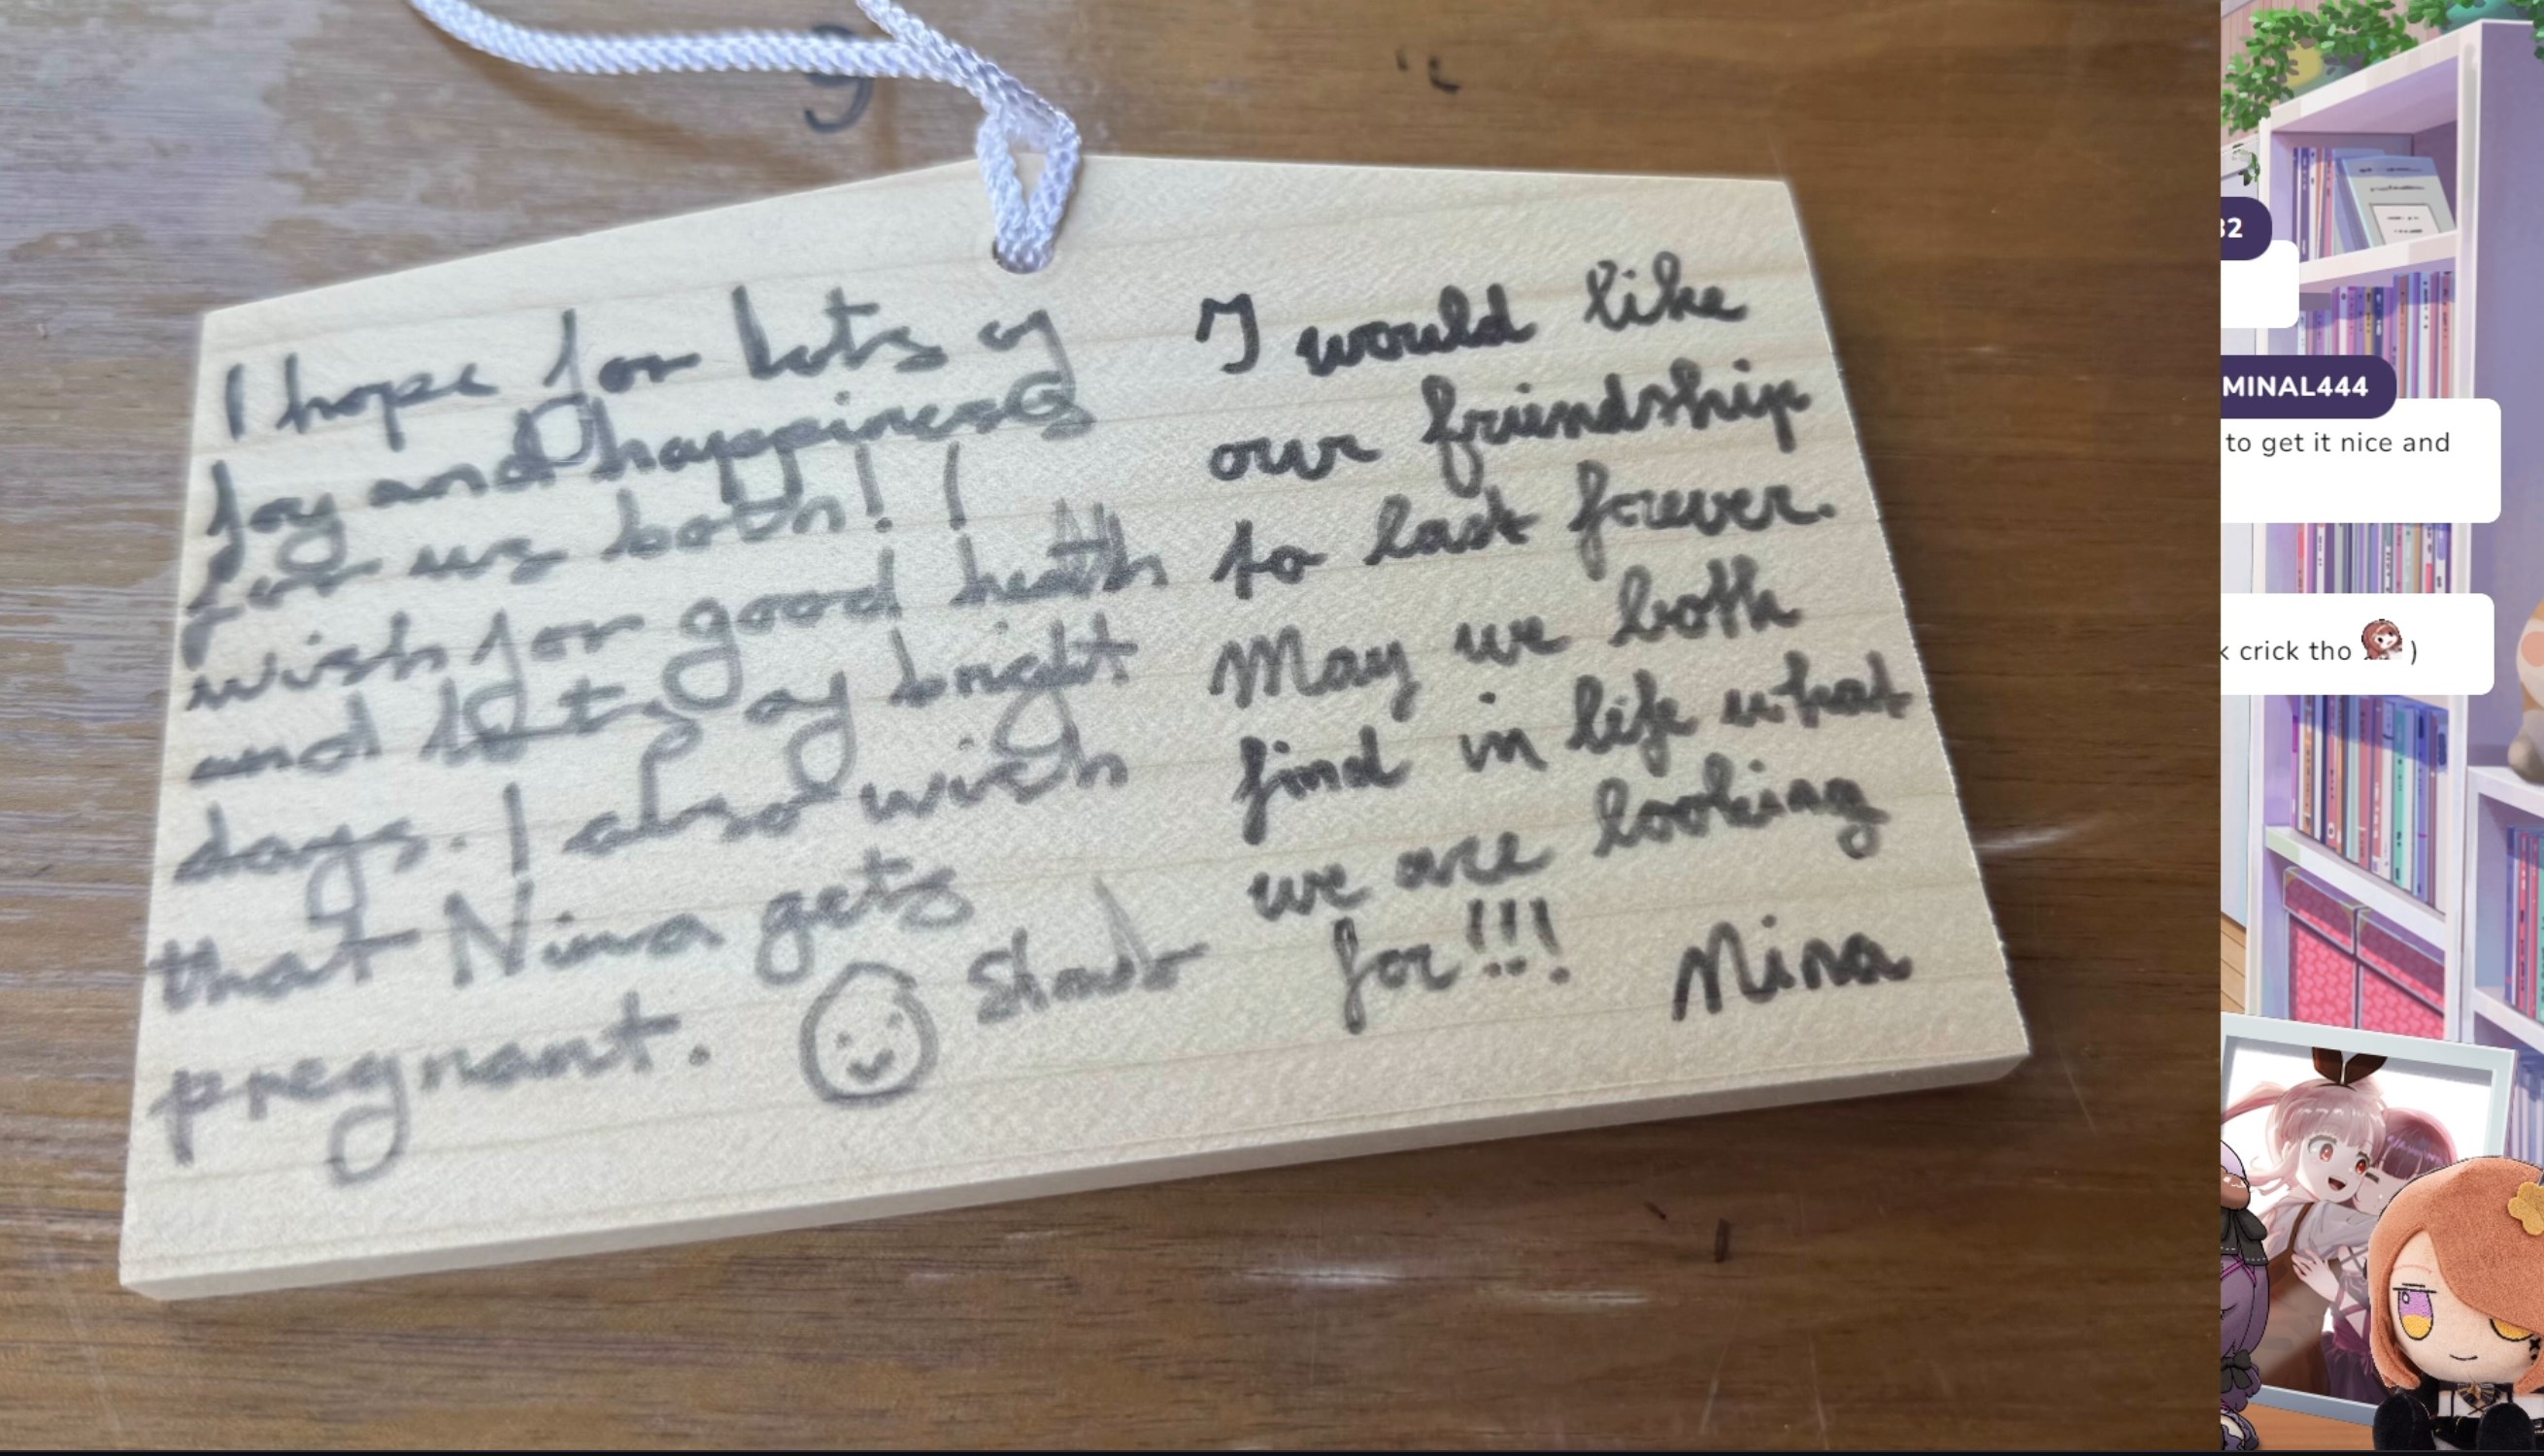 I hope for lots of
Joy and happiness
for us both! !
wish for good heath
and lots of bright
days. I also wish
that Nina gets
pregnant.
I would like
our friendship
to last forever.
May we both
find in life what
we are looking
for!!! Nina
32
MINAL444
to get it nice and
k crick tho )